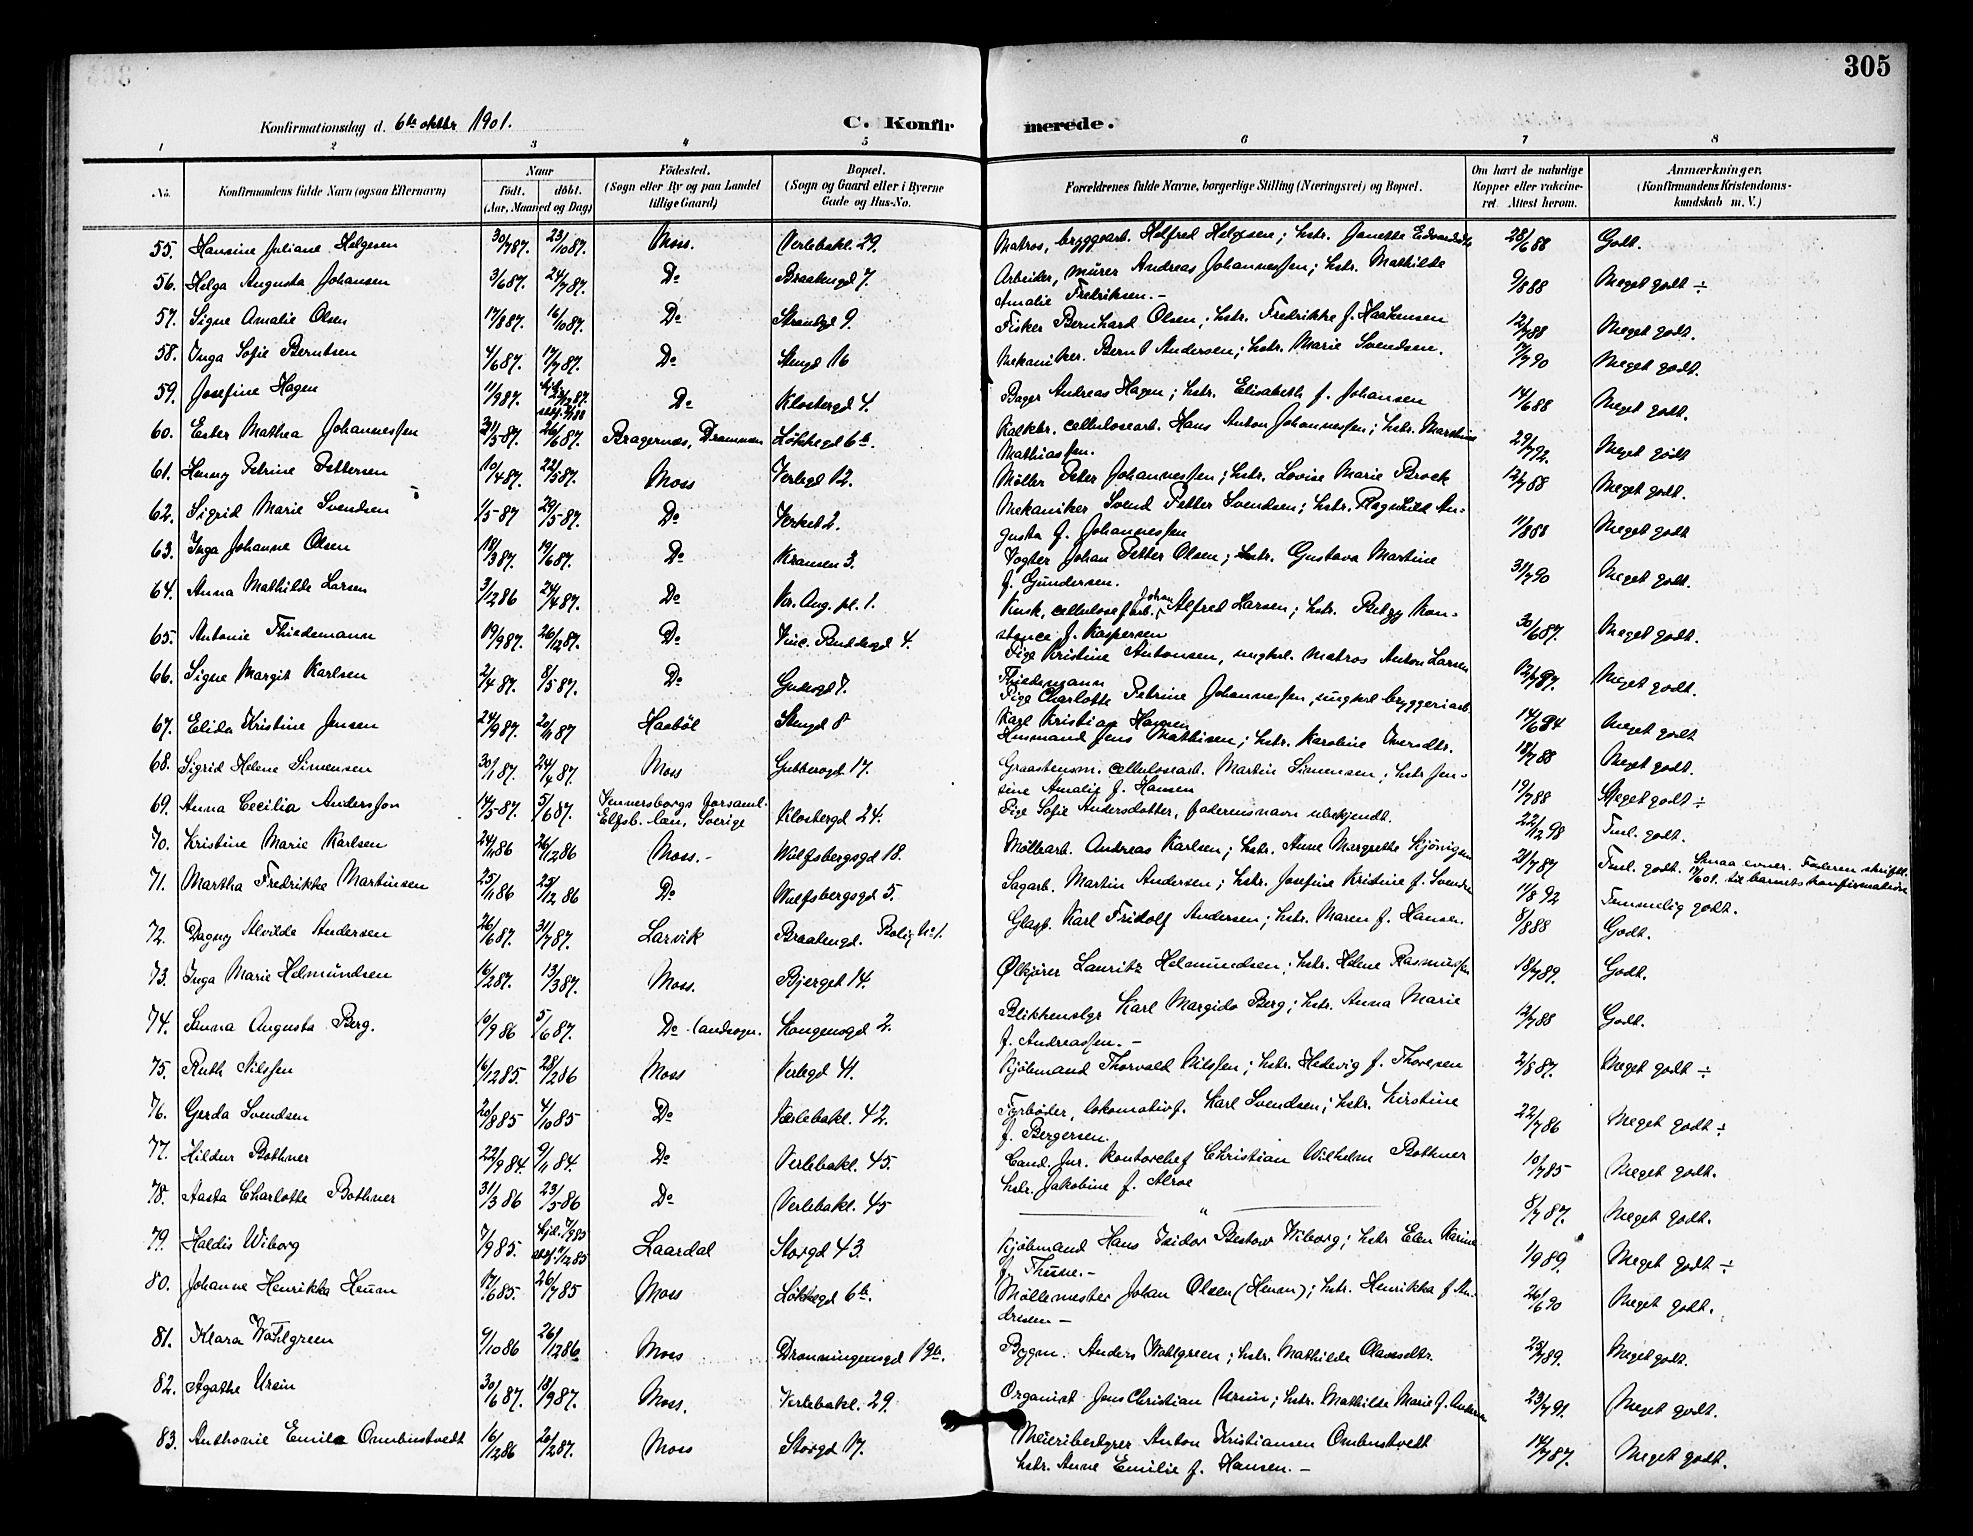 305
Konfirmationsdag d. 6te oktbr 1901.
C. Konfir- merede.
1 2 3 4 5 6 7 8
No. Konfirmandens fulde Navn (ogsaa Efternavn) Naar født. døbt. (Aar, Maaned og Dag) Fødested. (Sogn eller By og paa Landet tillige Gaard) Bopæl. (Sogn og Gaard eller i Byerne Gade og Hus-No. Forældrenes fulde Navne, borgerlige Stilling (Næringsvei) og Bopæl. Om havt de naturlige Kopper eller vakcineret. Attest herom. Anmærkninger. (Konfirmandens Kristendomskundskab m. V.)
55. Hansine Juliane Helgesen 30/7 87. 23/10 87. Moss. Verlebakl. 29. Matros, bryggearb. Helfred Helgesen; hstr. Janette Edvardsdtr 28/6 88 Godt.
56. Helga Augusta Johansen 3/6 87. 24/7 87. Do Braatengd 7. Arbeider, murer Andreas Johannessen; hstr. Mathilde
Amalie Fredriksen. - 9/8 88 Meget godt ÷
57. Signe Amalie Olsen 17/8 87. 16/10 87. Do Strandgd 9. Fisker Bernhard Olsen; hstr. Fredrikke f. Haakensen 12/7 88 Meget godt.
58. Inga Sofie Berntsen 4/6 87. 17/7 87. Do Stengd 16 Mekaniker. Bernt Andersen; hstr. Marie Svendsen. 17/7 90 Meget godt.
59. Josefine Hagen 11/9 87. Do Klostergd 4. Bager Andreas Hagen; hstr. Elisabeth f. Johansen 14/6 88 Meget godt.
60. Ester Mathea Johannessen 31/5 87. 26/6 87. Bragernes, Drammen Løkkegd 6b. cellulosearb. Hans Anton Johannessen; hstr. Marthine
Mathiassen. 29/7 92. Meget godt
61. Henny Petrine Pettersen 10/4 87. 22/5 87. Moss Verlegd 12. Møller Peter Johannessen; hstr. Lovise Marie Brock 12/7 88 Meget godt.
62. Sigrid Marie Svendsen 1/5 87 29/5 87. Do Verket 2. Mekaniker Svend Petter Svendsen; hstr. Ragnhild Au-
gusta f. Johannessen 11/8 88 Meget godt
63. Inga Johanne Olsen 18/3 87. 19/6 87. Do Kransen 3. Vogter Johan Petter Olsen; hstr. Gustava Martine
f. Gundersen. 31/7 90 Meget godt.
64. Anna Mathilde Larsen 3/12 86 24/4 87. Do Kr. Aug. pl. 1. Kusk, cellulosefarb. Johan Alfred Larsen; hstr. Betzy Kon-
stance f. Kaspersen 30/6 87. Meget godt.
65. Antonie Thiedemann 19/9 87. 26/12 87. Do Vinc. Buddesgd 4. Pige Kristine Antonsen, ungkrl. matros Anton Larsen
Thiedemann 12/7 87. Meget godt.
66. Signe Margit Karlsen 2/4 87. 8/5 87. Do Gudesgd 7. Pige Charlotte Petrine Johannessen, ungkrl bryggeriarb.
Karl Kristian Hansen 14/6 94 Meget godt
67. Elida Kristine Jensen 24/9 87. 20/11 87 Haabøl Stengd 8 Husmand Jens Mathisen; hstr. Karoline Iversdtr. 18/7 88 Meget godt.
68. Sigrid Helene Simensen 30/1 87. 24/4 87. Moss Gubberogd 17. Graastensm. cellulosearb. Martin Simensen; hstr Jen-
sine Amalie f. Hansen 19/7 88 Meget godt ÷
69. Anna Cecilia Andersson 14/5 87. 5/6 87. Vennersborgs forsaml.
Elfsb. län, Sverige Klostergd 24. Pige Sofie Andersdotter, faderens navn ubekjendt. 22/12 98 Tml. godt.
70. Kristine Marie Karlsen 24/11 86 26/12 86 Moss. - Wulfsbergsgd 18. Møllearb. Andreas Karlsen; hstr. Anne Margrethe 21/7 87 Tml. godt. Smaa evner. Faderen skriftl.
til barnets konfirmation
71. Martha Fredrikke Martinsen 25/11 86 25/12 86 Do Wulfsbergsgd 5. Sagarb. Martin Andersen; hstr. Josefine Kristine f. Svendsen 11/8 92 Temmelig godt.
72. Dagny Alvilde Andersen 26/6 87. 31/7 87. Larvik Braatengd. Bolig no 1. Glasp. Karl Fridolf Andersen; hstr. Maren f. Hansen. 8/8 88 Godt.
73. Inga Marie Helmundsen 16/2 87. 13/3 87. Moss. Bjerget 14. Ølkjører Lauritz Helmundsen; hstr. Helene Rasmussen 18/7 89. Godt.
74. Sanna Augusta Berg. 10/9 86 5/6 87. Do landsogn. Kongensgd 2. Blikkenslgr Karl Margido Berg; hstr. Anna Marie
f. Andreassen. - 12/7 88 Godt.
75. Ruth Nilssen 16/12 85. 28/2 86 Moss Verlegd 41. Kjøbmand Thorvald Nilssen; hstr. Hedevig f. Thoresen 2/8 87. Meget godt ÷
76. Gerda Svendsen 20/8 85 4/10 85 Do Verlebakl. 42. Fyrbøder, lokomotivf. Karl Svendsen; hstr. Kirstine
f. Bergersen. 22/7 86 Meget godt ÷
77. Hildur Bothner 22/9 84 9/11 84. Do Verlebakl. 45. Cand. jur. kontorchef Christian Wilhelm Bothner
hstr. Jakobine f. Alroe 10/7 85 Meget godt.
78. Aasta Charlotte Bothner 31/3 86 23/5 86 Do Verlebakl. 45 " 8/7 87. Meget godt.
79. Haldis Wiborg 7/9 85. hjd. 7/9 85 Laardal Storgd 43. Kjøbmand Hans Isidor Wiborg; hstr Elen Karine
f. Thune. - 1/9 89. Meget godt ÷
80. Johanne Henrikka Heum 17/6 85. 26/7 85 Moss Løkkegd 6b. Møllemester Johan Olsen (Heum); hstr. Henrikka f An-
dresen - 26/6 90 Meget godt.
81. Klara Wahlgreen 9/10 86 26/12 86 Moss Dronningensgd 19b. Bygm. Anders Wahlgreen; hstr. Mathilde Olavesdtr. 25/7 89. Meget godt.
82. Agathe Ursin 30/6 87. 18/9 87. Moss. Verlebakl. 29. Organist Jens Christian Ursin; hstr. Mathilde Marie f. Andersen 23/7 91. Meget godt.
83. Anthonie Emile Ombustvedt 16/12 86 20/2 87. Moss Storgd 17. Meieribestyrer Anton Kristiansen Ombustvedt
hstr. Anne Emilie f. Hansen. - 14/7 87. Meget godt.